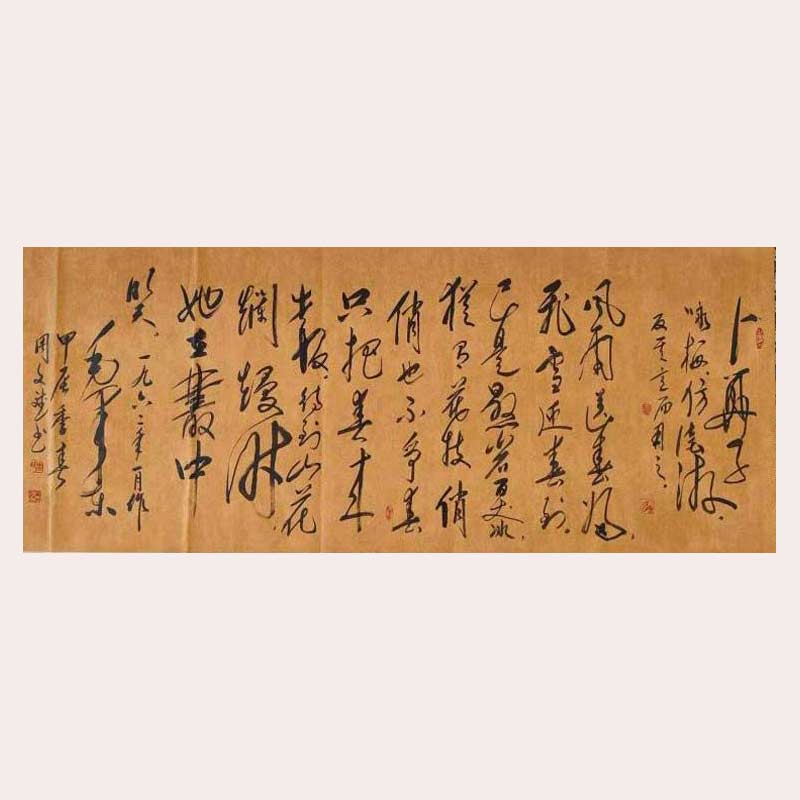 卜算子
咏梅，仿陆游，
反其意而用之。
风雨送春归，
飞雪迎春到。
已是悬崖百丈冰，
犹有花枝俏
俏也不争春
只把春来
报，待到山花
烂漫时
她在叢中
笑。一九六二年一月作
毛泽东
甲辰季春
周文书